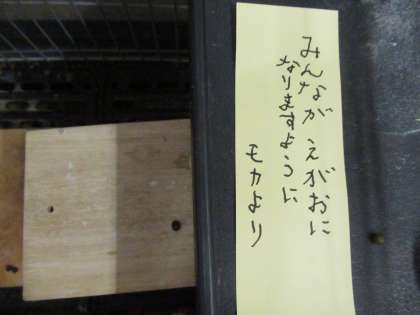 みんなが えがおに
なりますように
モカより